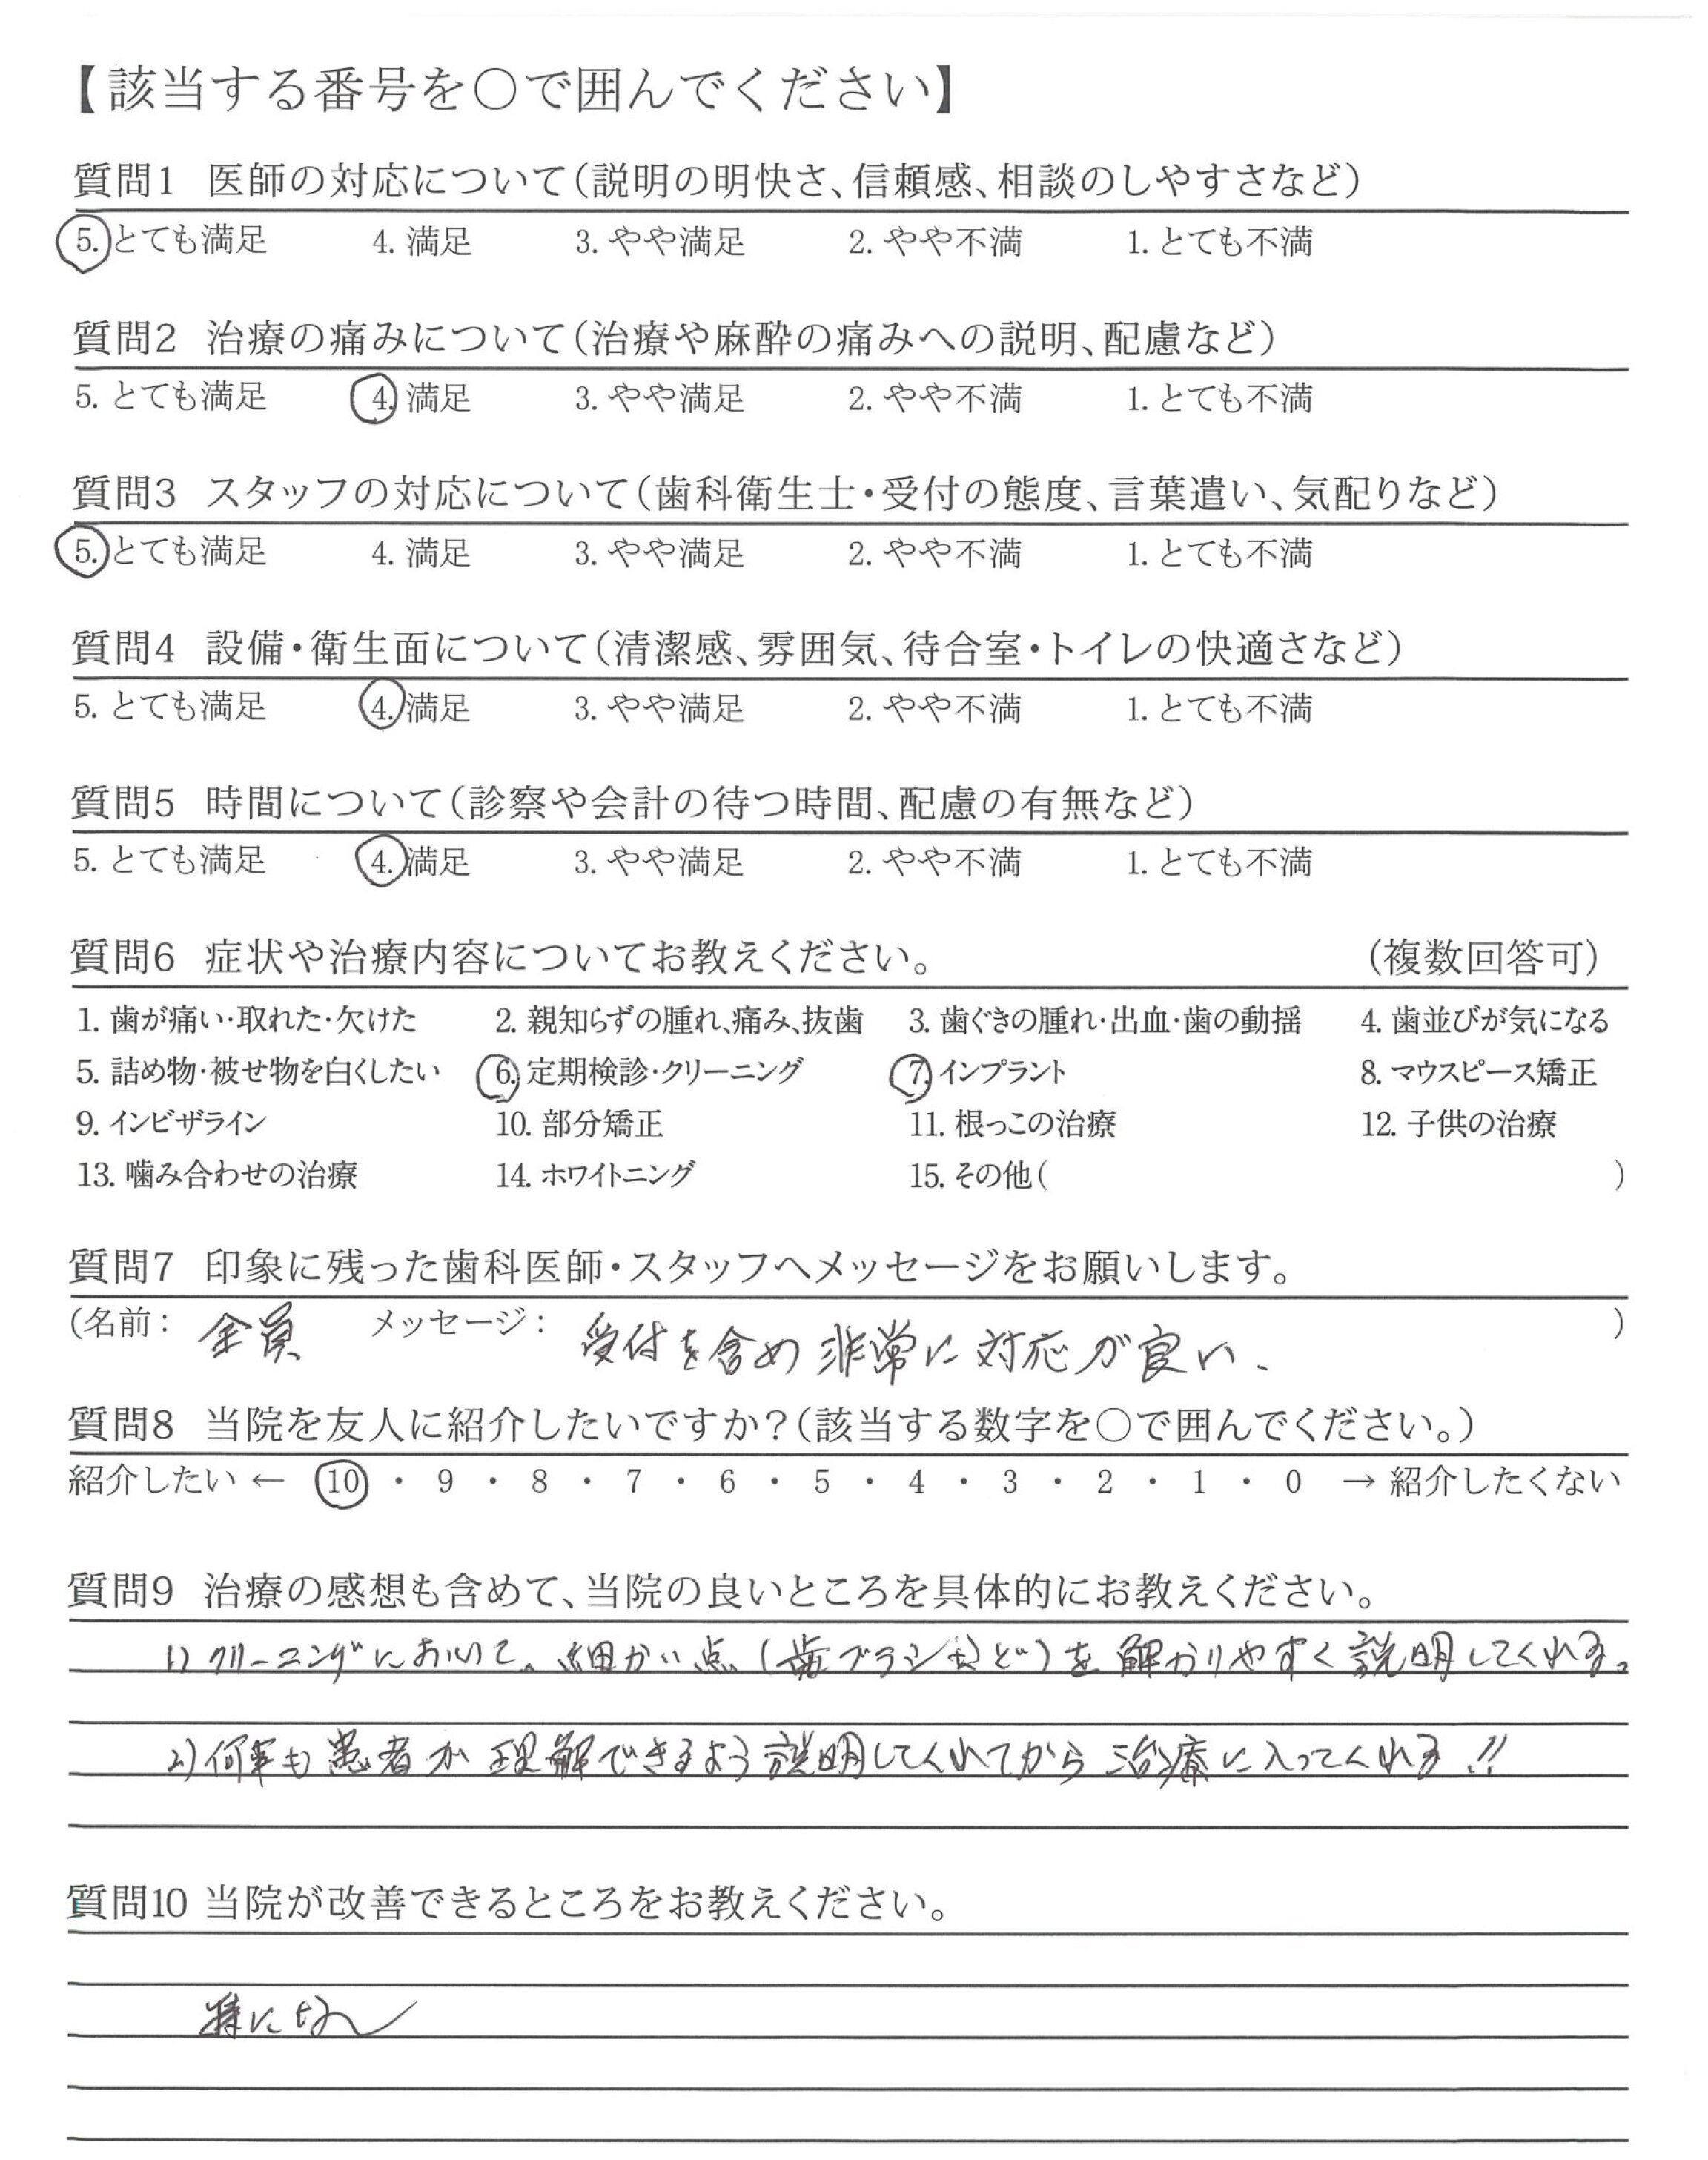 【該当する番号を○で囲んでください】
質問1 医師の対応について(説明の明快さ、信頼感、相談のしやすさなど)
5. とても満足 4. 満足 3. やや満足 2. やや不満 1. とても不満
質問2 治療の痛みについて(治療や麻酔の痛みへの説明、配慮など)
5. とても満足 4. 満足 3. やや満足 2. やや不満 1. とても不満
質問3 スタッフの対応について(歯科衛生士・受付の態度、言葉遣い、気配りなど)
5. とても満足 4. 満足 3. やや満足 2. やや不満 1. とても不満
質問4 設備・衛生面について(清潔感、雰囲気、待合室・トイレの快適さなど)
5. とても満足 4. 満足 3. やや満足 2. やや不満 1. とても不満
質問5 時間について(診察や会計の待つ時間、配慮の有無など)
5. とても満足 4. 満足 3. やや満足 2. やや不満 1. とても不満
質問6 症状や治療内容についてお教えください。 (複数回答可)
1. 歯が痛い・取れた・欠けた 2. 親知らずの腫れ、痛み、抜歯 3. 歯ぐきの腫れ・出血・歯の動揺 4. 歯並びが気になる
5. 詰め物・被せ物を白くしたい 6. 定期検診・クリーニング 7. インプラント 8. マウスピース矯正
9. インビザライン 10. 部分矯正 11. 根っこの治療 12. 子供の治療
13. 噛み合わせの治療 14. ホワイトニング 15. その他( )
質問7 印象に残った歯科医師・スタッフへメッセージをお願いします。
(名前: 全員 メッセージ: 受付を含め非常に対応が良い、 )
質問8 当院を友人に紹介したいですか?(該当する数字を○で囲んでください。)
紹介したい ← 10 ・ 9 ・ 8 ・ 7 ・ 6 ・ 5 ・ 4 ・ 3 ・ 2 ・ 1 ・ 0 → 紹介したくない
質問9 治療の感想も含めて、当院の良いところを具体的にお教えください。
1) クリーニングにおいて、細かい点(歯ブラシなど)を解かりやすく説明してくれる。
2) 何事も患者が理解できるよう説明してくれてから治療に入ってくれる!!
質問10 当院が改善できるところをお教えください。
特になし